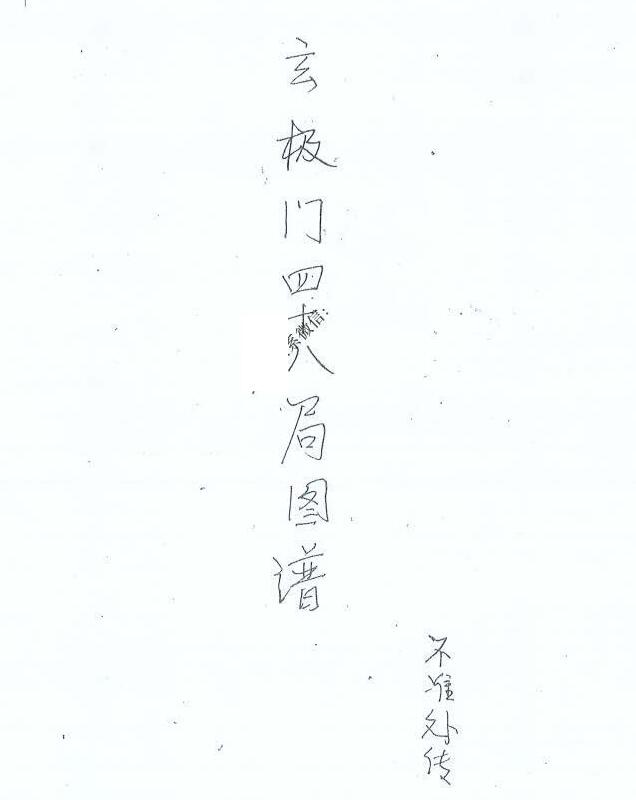 玄极门四十八局图谱
系微信:
不准外传